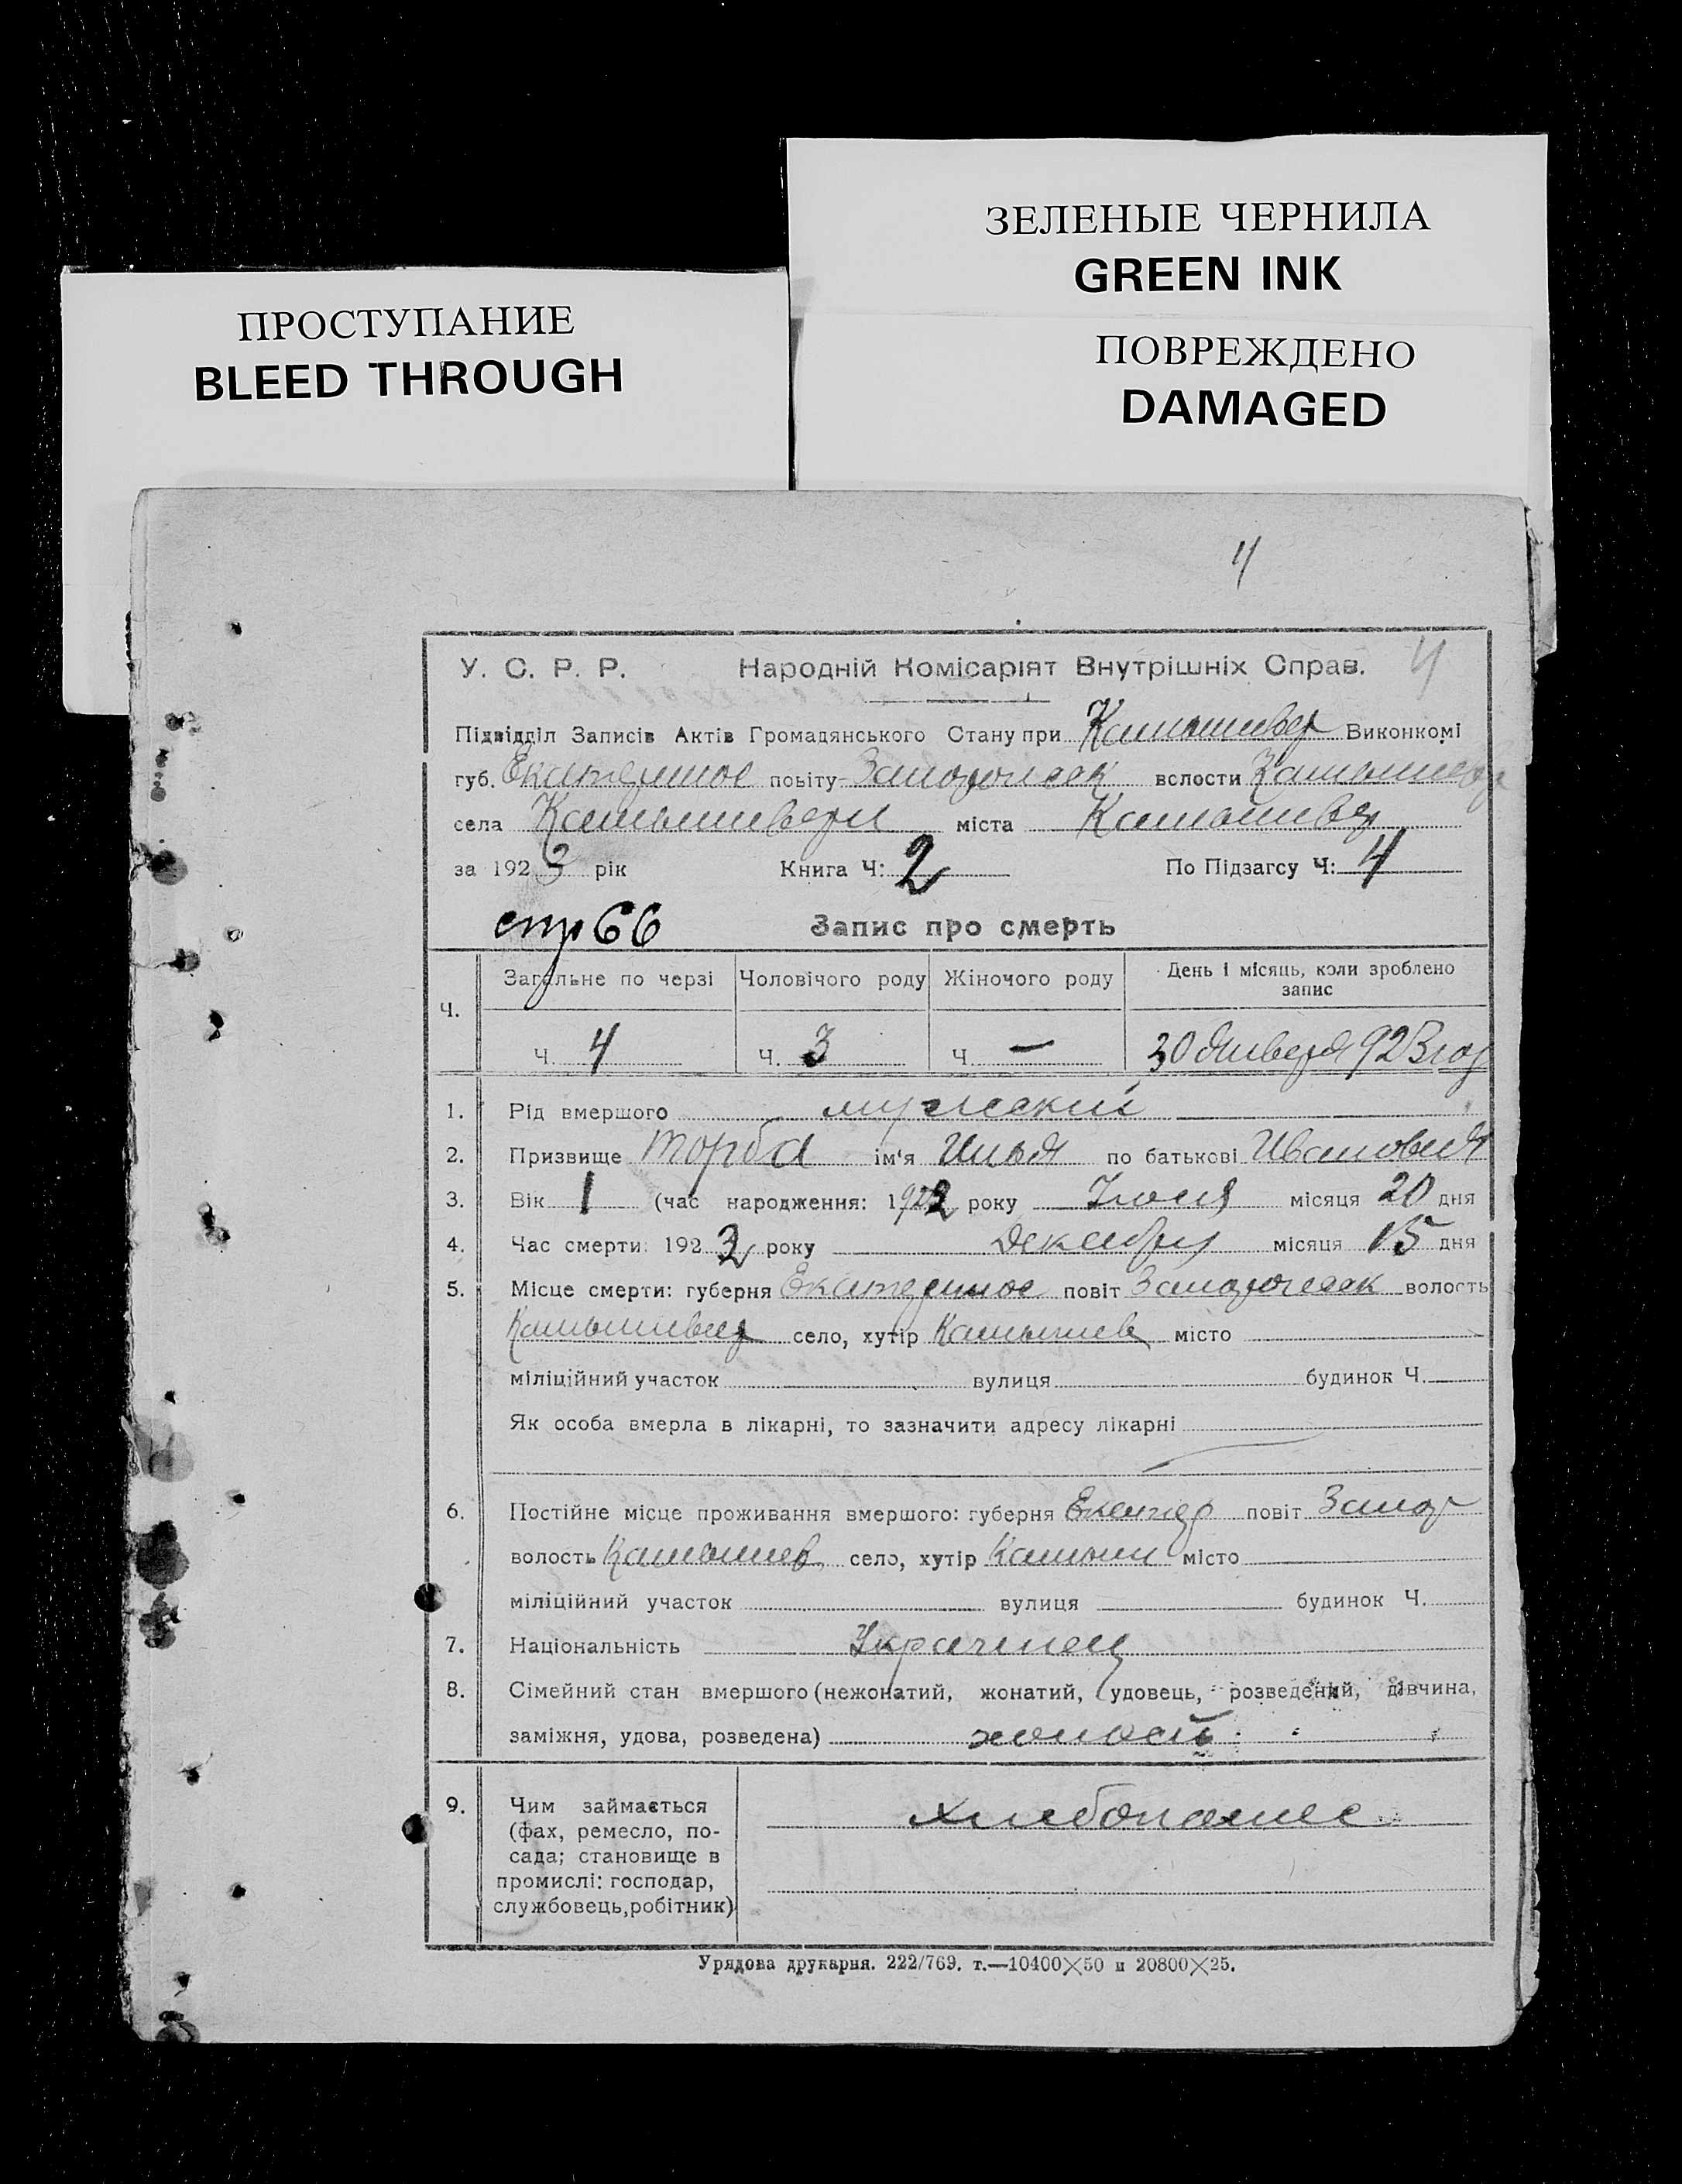 ЗЕЛЕНЫЕ ЧЕРНИЛА
GREEN INK
ПРОСТУПАНИЕ
BLEED THROUGH
ПОВРЕЖДЕНО
DAMAGED
4
У. С. Р. Р. Народній Комісаріят Внутрішніх Справ. 4
Підвідділ Записів Актів Громадянського Стану при Камышевер Виконкомі
губ. Екатеринос повіту Запорожсек волости
села міста Камышевер
за 1923 рік Книга Ч: 2 По Підзагсу Ч: 4
стр 66 Запис про смерть
Ч. Загальне по черзі Чоловічого роду Жіночого роду День і місяць, коли зроблено запис
Ч. 4 Ч. 3 Ч. — 30 Января 923 год
1. Рід вмершого мужеский
2. Призвище Торба ім'я Илья по батькові Иванович
3. Вік 1 (час народження: 1922 року месяця 20 дня
4. Час смерти: 192 року Декабря місяця 15 дня
5. Місце смерти: губерня Екатеринос повіт Запорожсек волость
село, хутір Камышев місто
міліційний участок вулиця будинок Ч.
Як особа вмерла в лікарні, то зазначити адресу лікарні
6. Постійне місце проживання вмершого: губерня Екатер повіт Запор
волость Камышев село, хутір Камыш місто
міліційний участок вулиця будинок Ч.
7. Національність Украинец
8. Сімейний стан вмершого (нежонатий, жонатий, удовець, розведений, дівчина,
заміжня, удова, розведена) холост
9. Чим займається хлебопашец
(фах, ремесло, по-
сада; становище в
промислі: господар,
службовець, робітник)
Урядова друкарня. 222/769. т.—10400×50 и 20800×25.